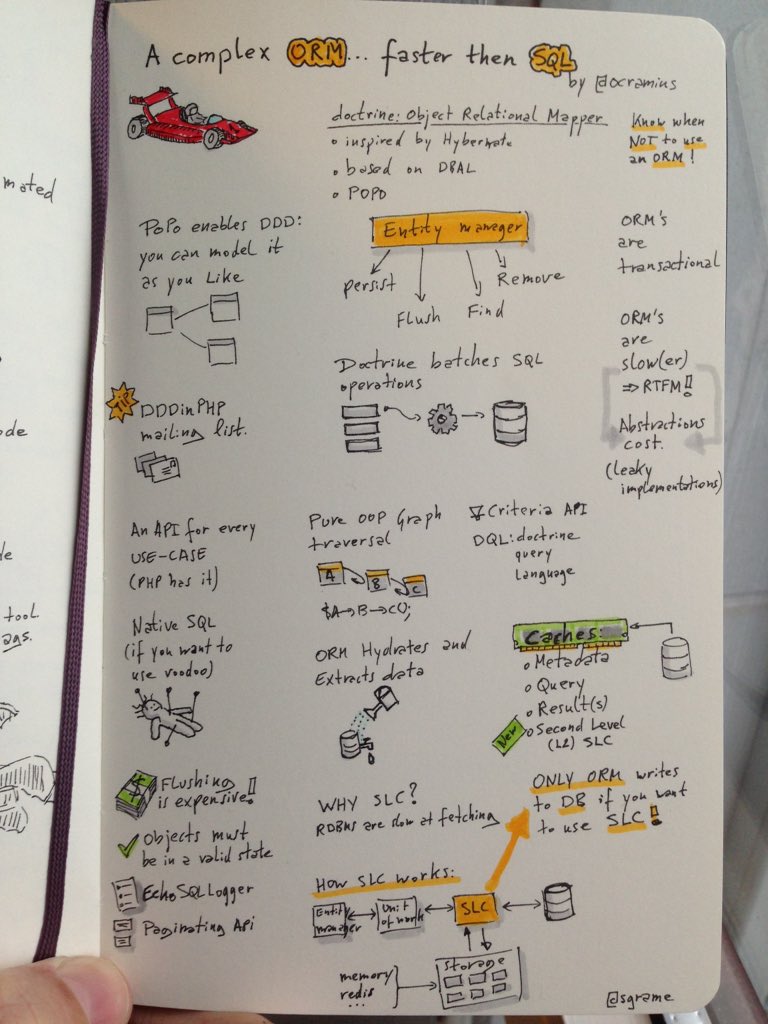 A complex ORM... faster then SQL
by @ocramius
doctrine: Object Relational Mapper
• inspired by Hybernate
• based on DBAL
• POPO
Know when
NOT to use
an ORM!
POPO enables DDD:
you can model it
as you Like
Entity manager
persist
Flush
Find
Remove
ORM's
are
transactional
ORM's
are
slow(er)
⇒ RTFM!!
Abstractions
cost.
(leaky
implementations)
Doctrine batches SQL
operations
TIP
DDDinPHP
mailing list.
An API for every
USE-CASE
(PHP has it)
Pure OOP Graph
traversal
A
B
C
$A→B→C();
Criteria API
DQL: doctrine
query
Language
Native SQL
(if you want to
use voodoo)
ORM Hydrates and
Extracts data
Caches:
• Metadata
• Query
• Result(s)
New
• Second Level
(L2) SLC
Flushing
is expensive!!
Objects must
be in a valid state
EchoSQLLogger
Paginating Api
WHY SLC?
RDBMS are slow at fetching
ONLY ORM writes
to DB if you want
to use SLC!
How SLC works:
Entity
manager
Unit
of work
SLC
storage
memory
redis
...
@sgrame
mated
ode
de
tool
ags.